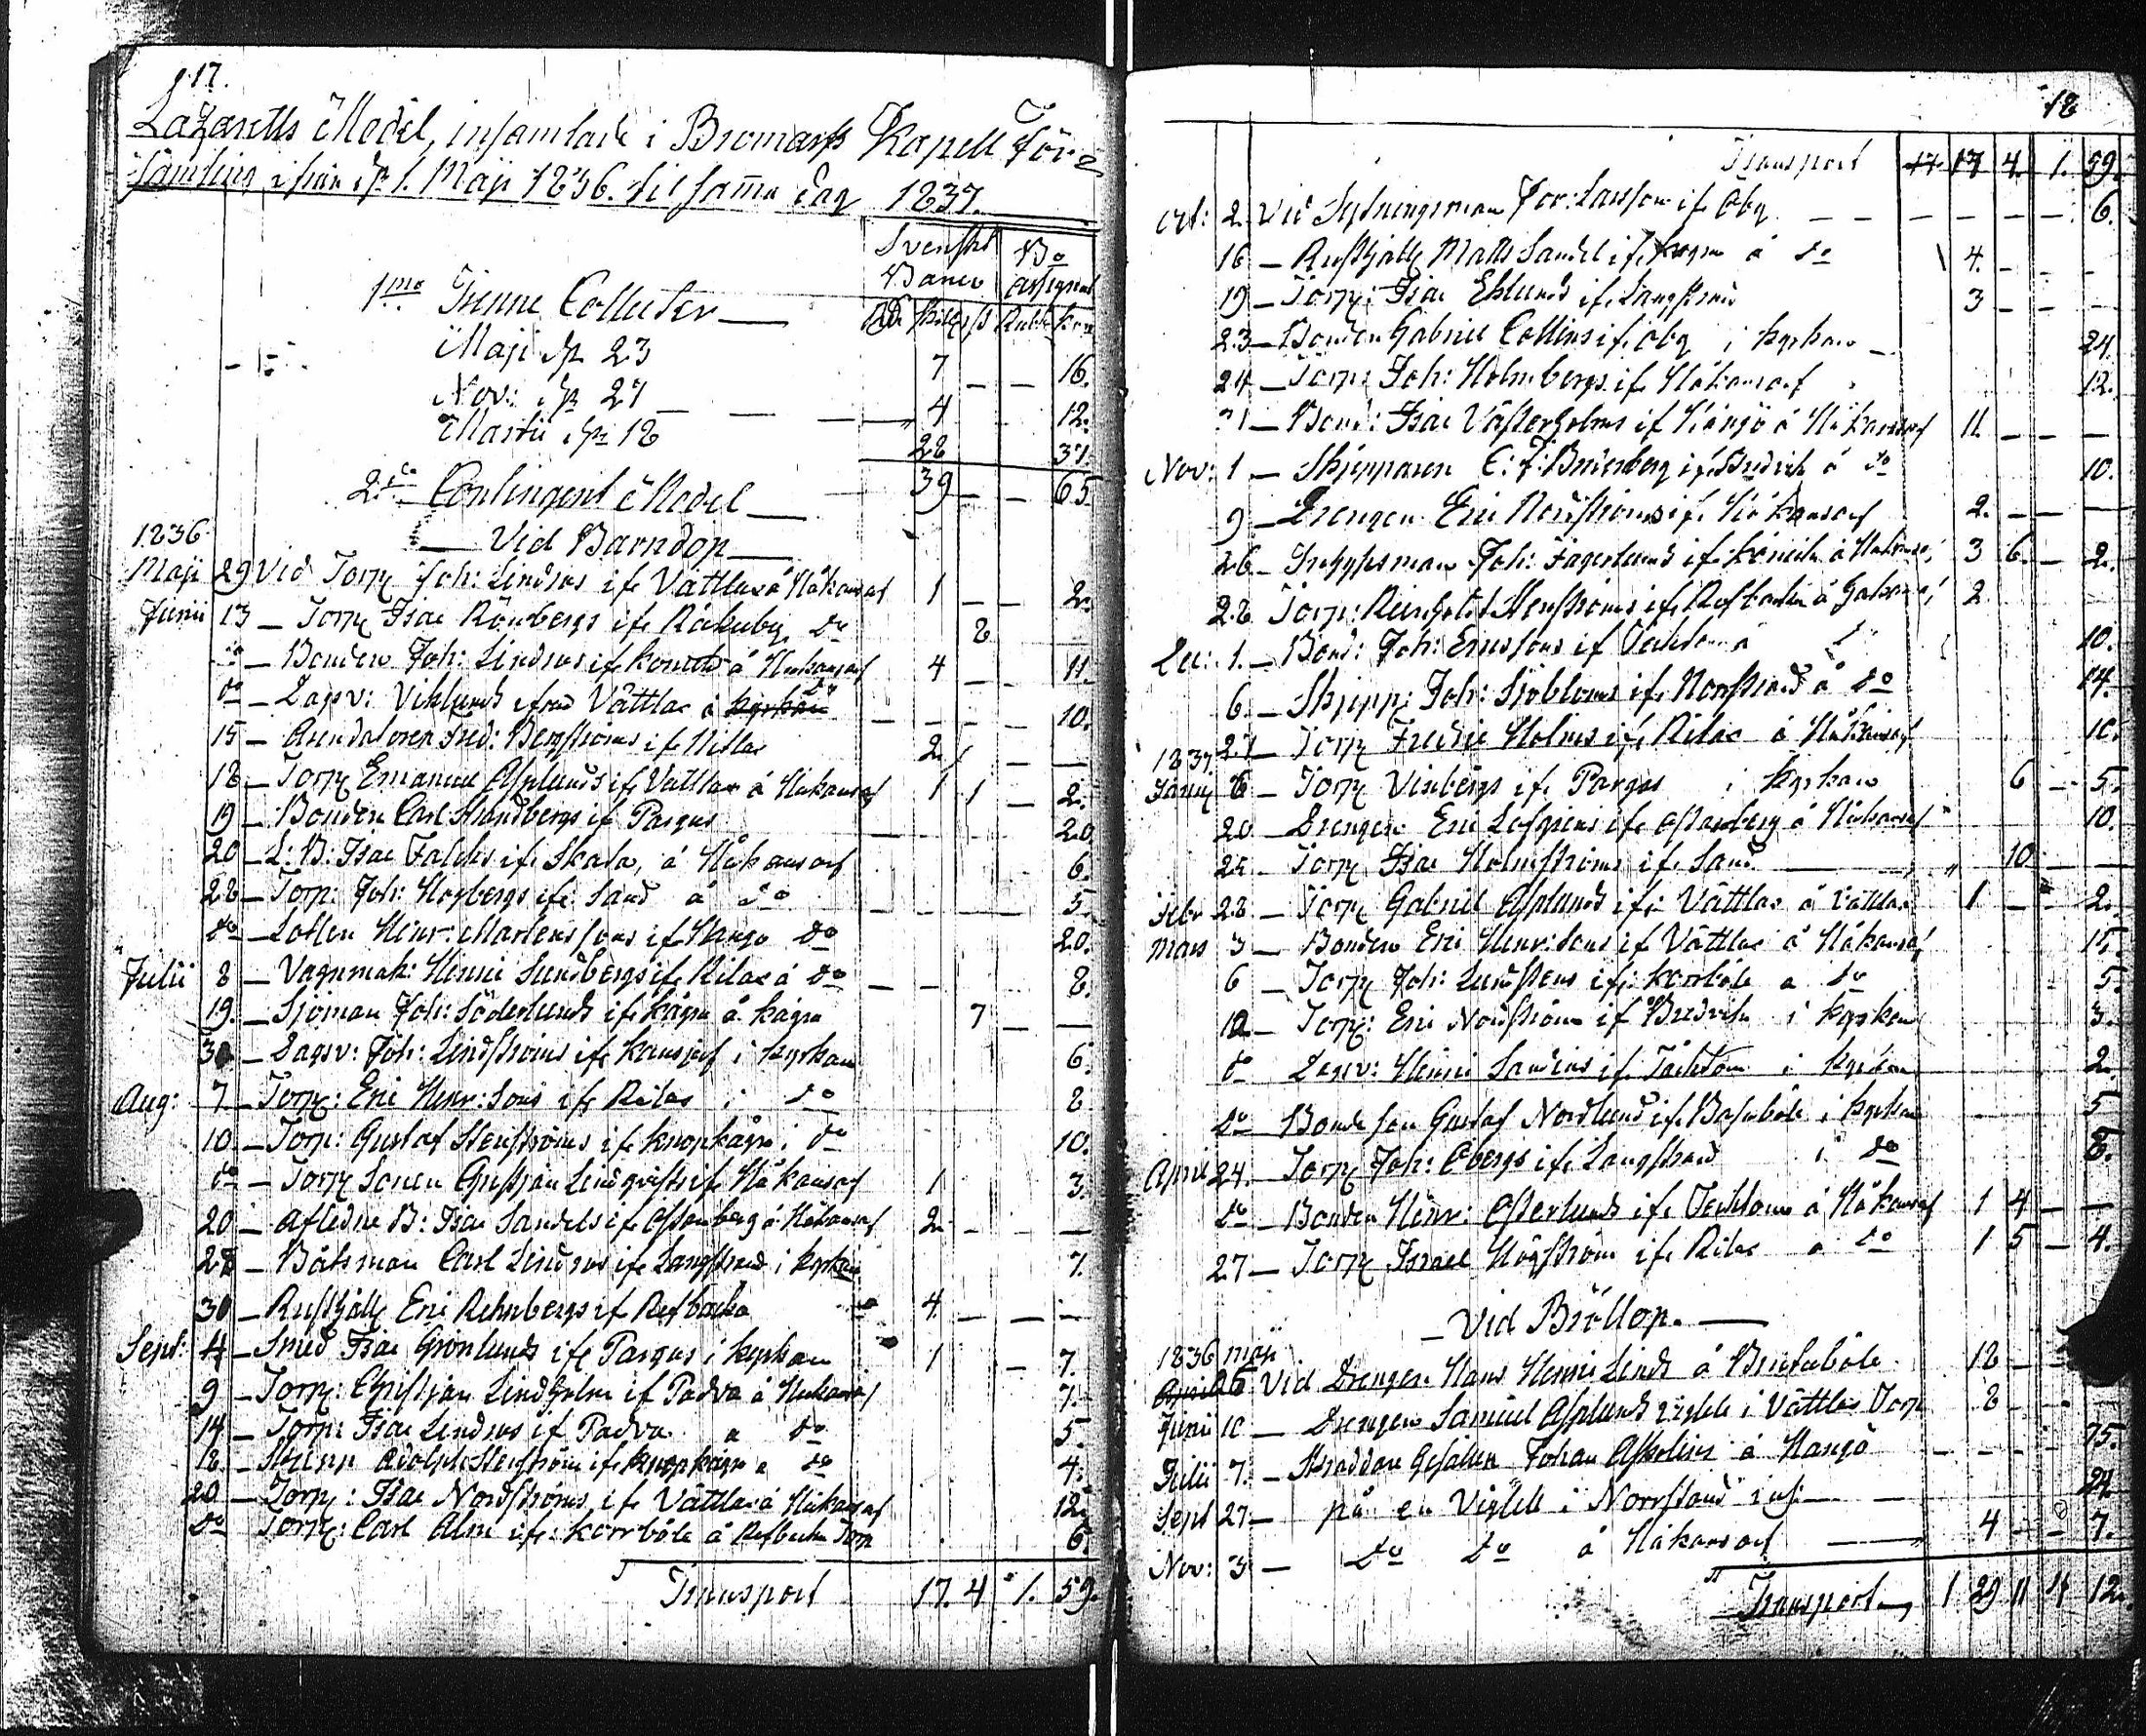 17.
Lazaretts Medel, insamlade i Bromarfs Kapell För=
samling ifrån d. 1. Maji 1836. til samma dag 1837.
Svenskt Banco Bo assignat
Rd Skill rst Rubl. Kop
1mo Trenne Collecter
Maji d. 23 7 — — 16.
Nov: d. 27 — 4 12.
Martii d. 12 28 37.
39 — — 65.
2do Contingent Medel
Vid Barndop
1836
Maji 29 Vid Torp Joh: Lindros ifr Vättlax å Håkansarf 1 — — 2.
Junii 13 — Torp Isac Rönbergs ifr Råkuby do 8
do — Bonden Joh: Lindros ifr å Håkansarf 4 — — 11.
do — Dagsv: Viklunds ifrån Vättlax å kyrkan do — — — — 10.
15 — Arendatoren Fred: Bergströms ifr Nitlax 2 — —
18 — Torp Emanuel Asplunds ifr Vättlax å Håkansarf 1 1 — 2.
19 — Bonden Carl Strandbergs if Pargas — — — 20.
20 — L: B: Isac Falcks ifr Skata, å Håkansarf 6.
28 — Torp: Joh: Högbergs ifr Sand å do — — — 5.
do — Lotsen Henr: Mårtenssons if Hangö do 20.
Julii 8 — Vagnmak: Henric Sundbergs ifr Rilax å do — — 8.
19. — Sjöman Joh: Söderlunds ifr kågra å kågra 7 — —
30 — Dagsv: Joh: Lindströms ifr Kansjerf i kyrkan 6.
Aug: 7 — Torp: Eric Henr: Sons ifr Rilax i do 8
10. — Torp: Gustaf Stenströms ifr knopkågra i do 10.
do — Torp Sonen Christjan Lindqvists ifr Håkansarf 1 3.
20 — Afledne B: Isac Sandels ifr Östanberg å Håkansarf 2 — —
28 — Båtsman Carl Lindros ifr Langstrand i kyrkan 7.
30 — Rusthåll Eric Rehnbergs if Refbacka do 4. — — —
Sept: 4 — Smed Isac Grönlunds ifr Pargas i kyrkan 1 — 7.
9 — Torp: Christjan Lindholm if Padva å Håkansarf 7.
14 — Torp: Isac Lindros if Padva å do 5.
18. — Adolph Stenström ifr knopkågra å do 4.
20 — Torp: Isac Nordströms ifr Vättlax å Håkansarf 12.
do Torp: Carl Alm ifr: Korrböle å Refbacka Torp 6.
Transport 17. 4 1. 59.
18
Transport 17 17 4. 1. 59.
Oct: 2. Vid Sytningsman Larsson ifr Öby — — — — — — 6.
16 — Rusthåll Matts Sandel ifr kågra å do 4. — — —
19 — Torp: Isac Eklunds ifr Langstrand 3 — — —
23 — Bonden Gabriel Collins ifr Öby i kyrkan — 24.
24 — Torp: Joh: Holmbergs ifr Håkansarf 12.
31 — Bond: Isac Västerholms if Hangö å Håkansarf 11. — — —
Nov: 1 — Skepparen C: F: ifr Bredvik å do 10.
9 — Drengen Eric Nordströms ifr Håkansarf 2. — —
26 — Joh: Fagerlunds if å Håkansarf 3 6. — 2.
28 Torp: Reinholdt Stenströms ifr Refbacka å 2
Dec: 1. — Bond: Joh: Ericssons if Täcktom å 10.
6. — Skepp: Joh: Sjöbloms ifr Norrstrand å do 14.
27 — Torp Fredric Holms ifr Rilax å Håkansarf 10.
1837.
Janu: 6 — Torp Vinbergs ifr Pargas i kyrkan 6 — 5.
20 — Drengen Eric Löfgrens ifr Östanberg å Håkansarf 10.
28. Torp Isac Holmströms ifr Sand 10 —
Febr 28 — Torp Gabriel Asplunds ifr Vättlax å Vättlax 1 — 2.
Mars 3 — Bonden Eric Henr: Sons if Vättlax å Håkansarf 15.
6 — Torp Joh: Lundstens ifr: Korrböle å do 5.
12 — Torp: Eric Nordström if Bredvik i kyrkan 3.
do Dagsv: Henric Sandens if Täcktom i kyrkan 2.
do Bonde Son Gustaf Nordlund if Basaböle i kyrkan 5
April 24. Torp Joh: Öbergs ifr Langstrand i do 8.
do — Bonden Henr: Österlunds ifr Täcktom å Håkansarf 1 4 — —
27 — Torp Israel Högström ifr Rilax å do 1 5 — 4.
— Vid Bröllop. —
1836 Maji
26 Vid Drengen Hans Henric Linds å Brufaböle 18 —
Junii 10 — Drengen Samuel Asplunds vigsel i Vättlax Torp 8 —
Julii 7. — Skräddare Gesällen Johan Askolins å Hangö — — — — 75.
Sept 27 — på en Vigsel i Norrstrand — — 24
Nov: 3 — do do å Håkansarf — 4 — — 7.
Transport 1 29 11 4 12.